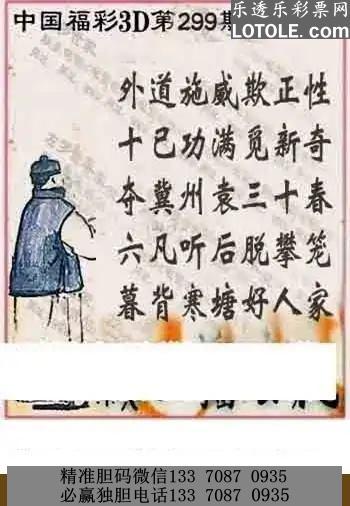 乐透乐彩票网
LOTOLE.COM
中国福彩3D第299期
外道施威欺正性
十已功满觅新奇
夺冀州袁三十春
六凡听后脱攀笼
暮背寒塘好人家
精准胆码微信133 7087 0935
必赢独胆电话133 7087 0935